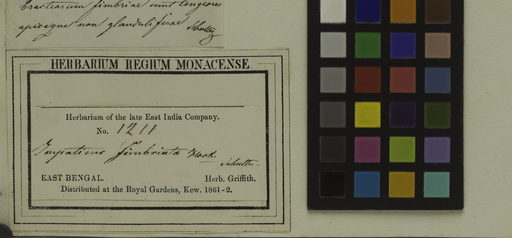 bractearum fimbriae sunt longiores
apiceque non glanduliferae
HERBARIUM REGIUM MONACENSE.
Herbarium of the late East India Company.
No. 1211
Impatiens fimbriata Hook.
EAST BENGAL. Herb. Griffith.
Distributed at the Royal Gardens, Kew. 1861-2.